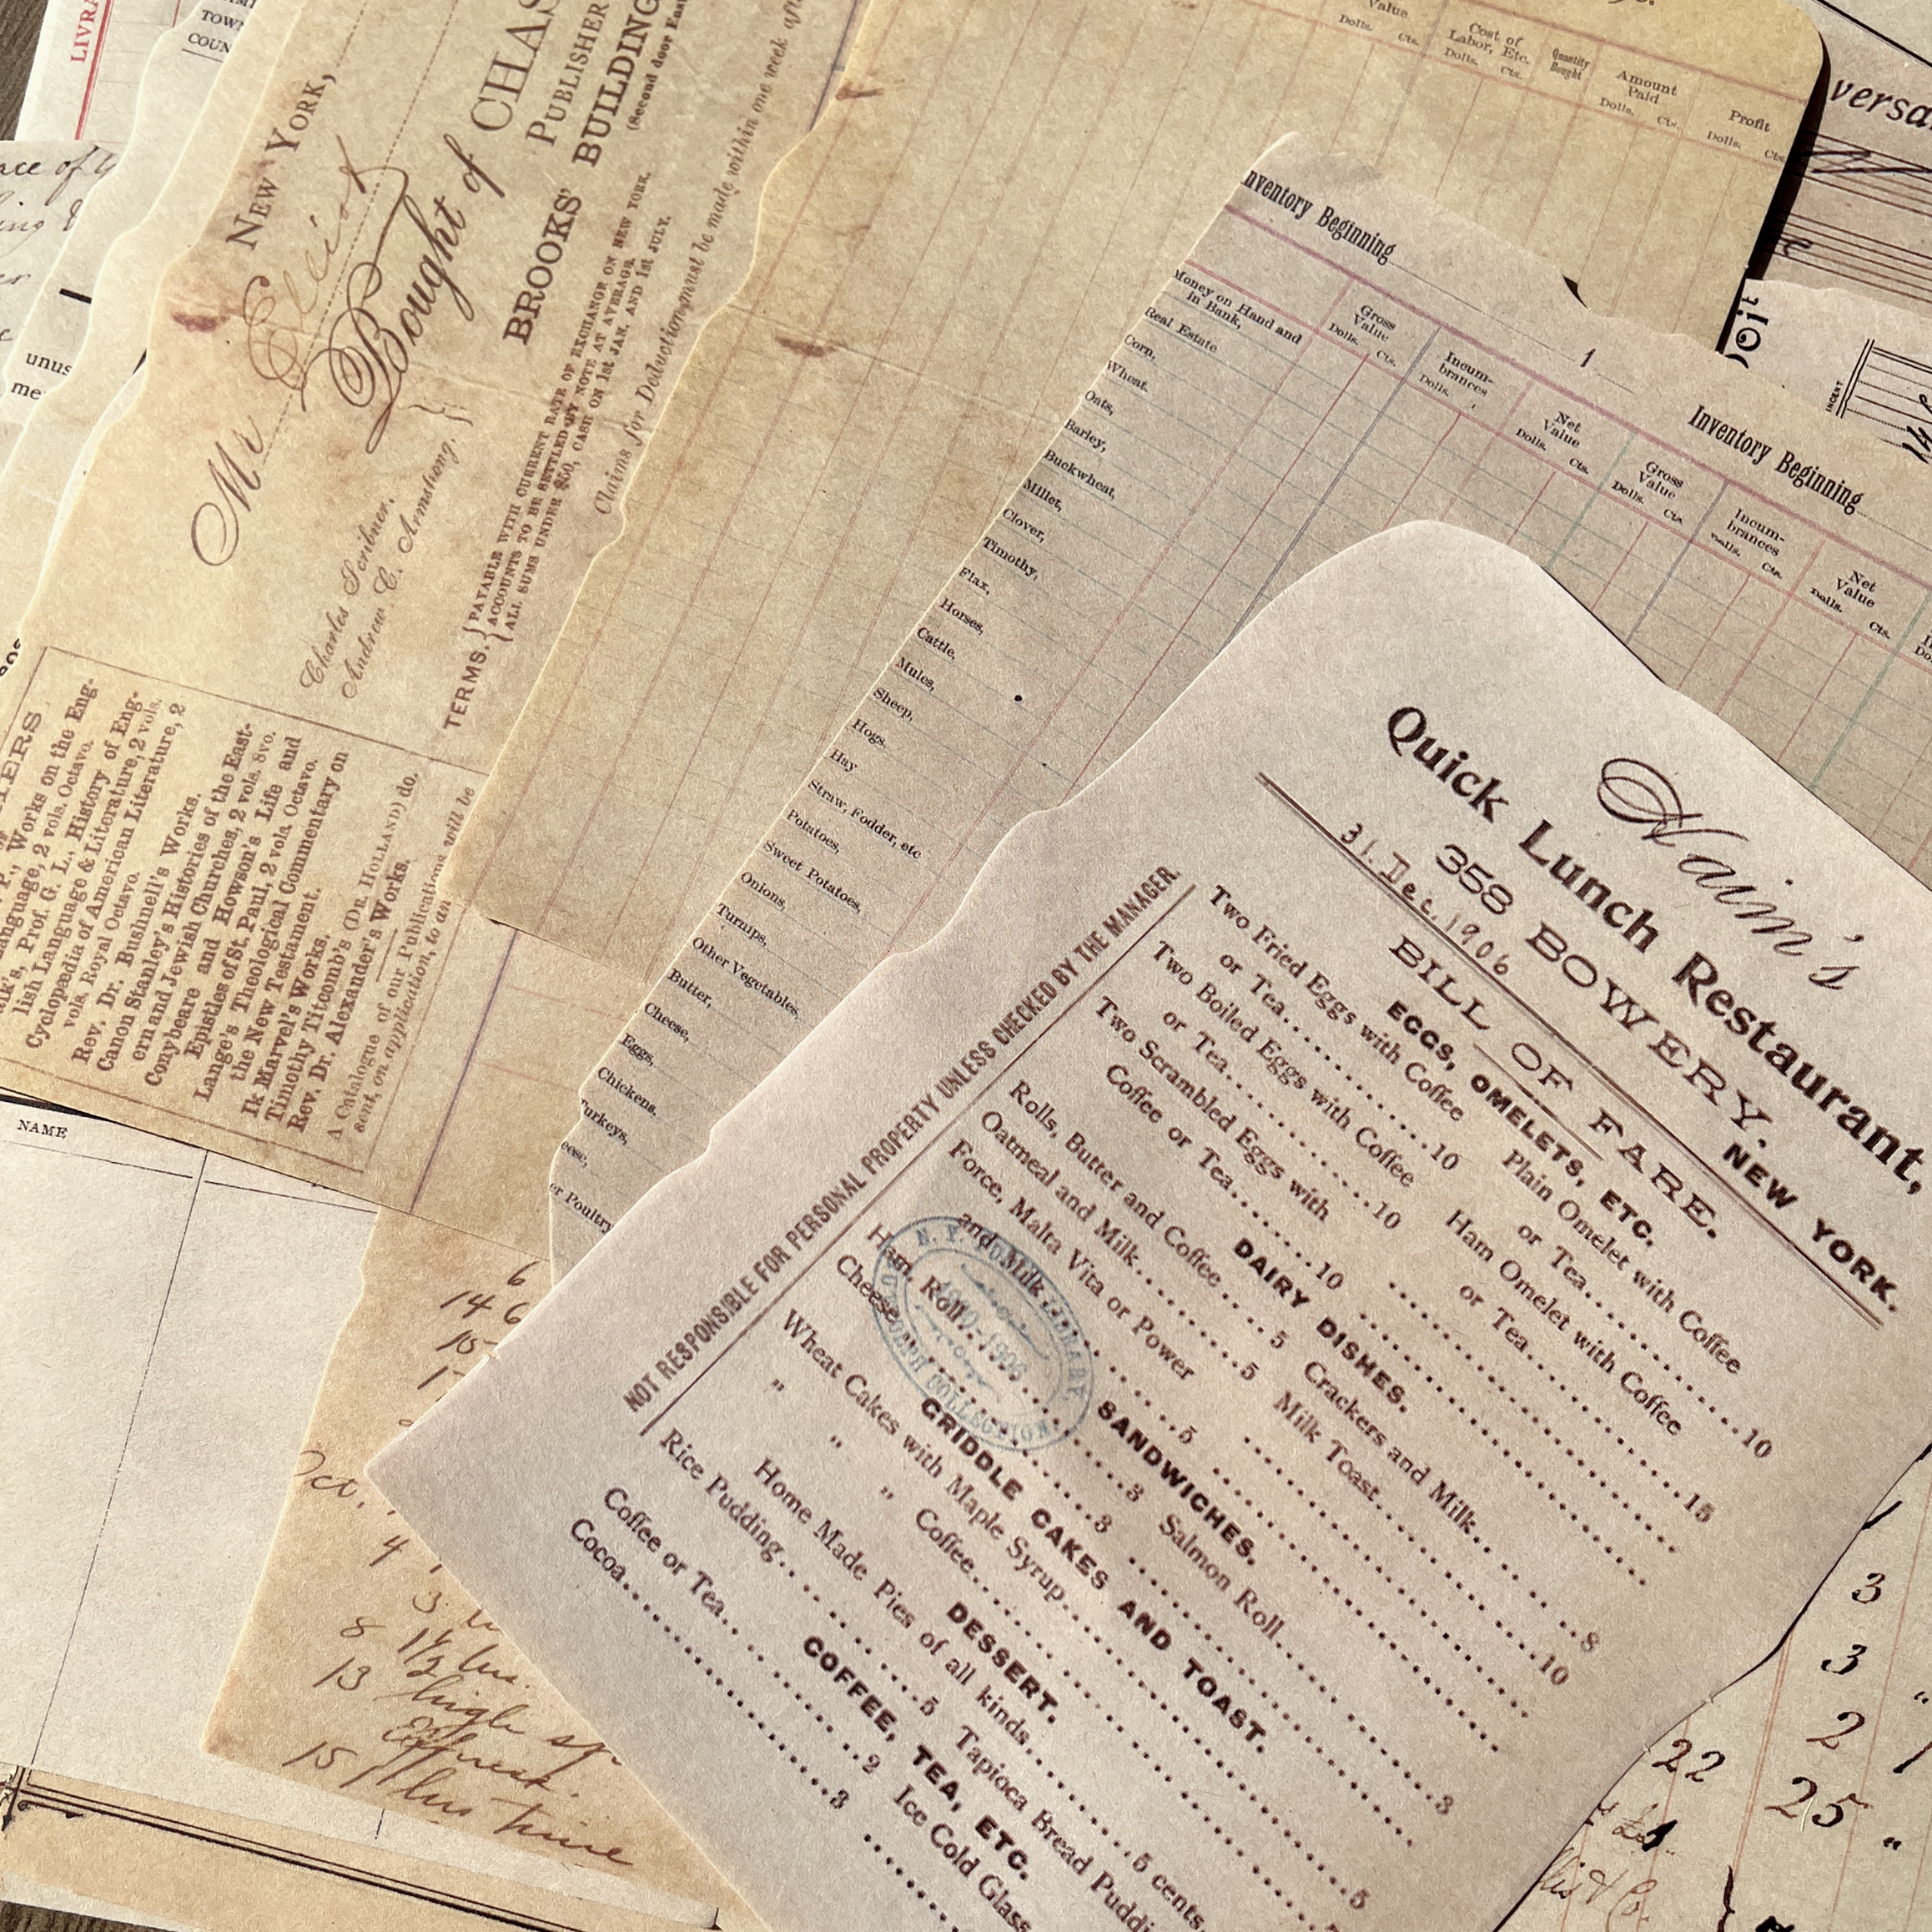 LIVRA
TOWN
COUN
NEW YORK,
Mr Elliot
Bought of CHAS
PUBLISHER
BROOKS' BUILDING
(Second door East
Charles Scribner,
Andrew C. Armstrong.
TERMS.
PAYABLE WITH CURRENT RATE OF EXCHANGE ON NEW YORK.
ACCOUNTS TO BE SETTLED BY NOTE AT AVERAGE.
ALL SUMS UNDER $50, CASH ON 1st JAN. AND 1st JULY.
Claims for Deductions must be made within one week
Works on the Eng-
Language, 2 vols. Octavo.
Prof. G. L., History of Eng-
lish Language & Literature, 2 vols.
Cyclopædia of American Literature, 2
vols. Royal Octavo.
Rev. Dr. Bushnell's Works.
Canon Stanley's Histories of the East-
ern and Jewish Churches, 2 vols. 8vo.
Conybeare and Howson's Life and
Epistles of St. Paul, 2 vols. Octavo.
Lange's Theological Commentary on
the New Testament.
Ik Marvel's Works.
Timothy Titcomb's (DR. HOLLAND) do.
Rev. Dr. Alexander's Works.
A Catalogue of our Publications will be
sent, on application, to an
unus
me
NAME
Value
Dolls. Cts.
Cost of
Labor, Etc.
Dolls. Cts.
Quantity
Bought
Amount
Paid
Dolls. Cts.
Profit
Dolls. Cts.
versa
INCENT
nventory Beginning
1
Inventory Beginning
Gross
Value
Dolls. Cts.
Incum-
brances
Dolls.
Net
Value
Dolls. Cts.
Gross
Value
Dolls. Cts.
Incum-
brances
Dolls. Cts.
Net
Value
Dolls. Cts.
Money on Hand and
in Bank,
Real Estate
Corn,
Wheat,
Oats,
Barley,
Buckwheat,
Millet,
Clover,
Timothy,
Flax,
Horses,
Cattle,
Mules,
Sheep,
Hogs,
Hay
Straw, Fodder, etc
Potatoes,
Sweet Potatoes,
Onions,
Turnips,
Other Vegetables,
Butter,
Cheese,
Eggs,
Chickens,
Turkeys,
eese,
er Poultry
Haim's
Quick Lunch Restaurant,
358 BOWERY. NEW YORK.
31. Dec. 1906
BILL OF FARE.
NOT RESPONSIBLE FOR PERSONAL PROPERTY UNLESS CHECKED BY THE MANAGER.
EGGS, OMELETS, ETC.
Two Fried Eggs with Coffee
or Tea..........10
Two Boiled Eggs with Coffee
or Tea..........10
Two Scrambled Eggs with
Coffee or Tea..........10
Plain Omelet with Coffee
or Tea..........10
Ham Omelet with Coffee
or Tea..........15
DAIRY DISHES.
Rolls, Butter and Coffee.....5
Oatmeal and Milk..........5
Force, Malta Vita or Power
and Milk..........5
Crackers and Milk..........8
Milk Toast..........10
SANDWICHES.
Ham Roll..........3
Cheese..........3
Salmon Roll..........3
GRIDDLE CAKES AND TOAST.
Wheat Cakes with Maple Syrup..........5
" " " Coffee..........
DESSERT.
Home Made Pies of all kinds..........5 cents.
Rice Pudding..........5
Tapioca Bread Puddi
COFFEE, TEA, ETC.
Coffee or Tea..........2
Cocoa..........3
Ice Cold Glass
N. Y. PUBLIC LIBRARY
COLLECTION
6
14 6
Oct.
4
3
8 1/2 hrs.
13 high
15 plus time
1
3
3 "
2
22 25 "